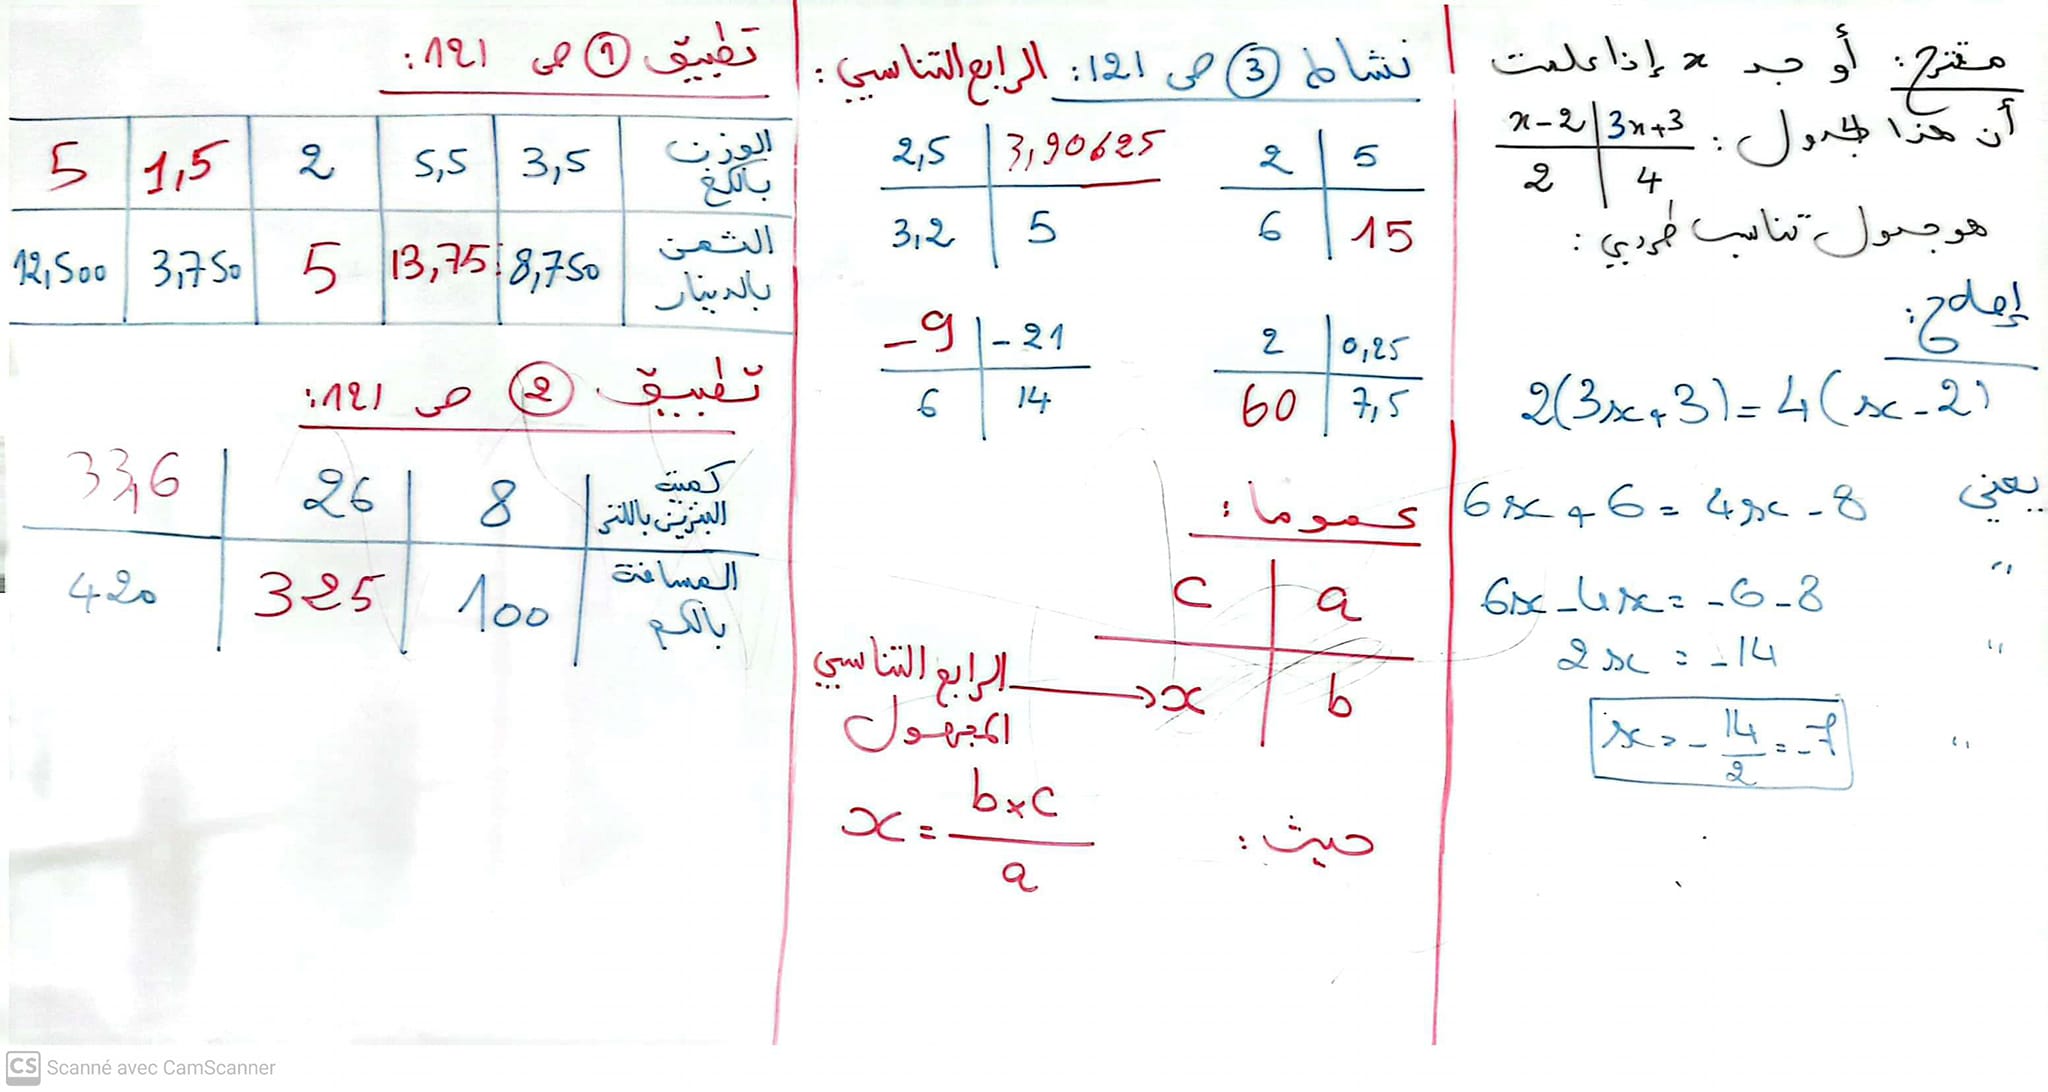 مقترح: أوجد x إذا علمت
أن هذا الجدول:
x-2 | 3x+3
2 | 4
هو جدول تناسب طردي:
إصلاح:
2(3x+3)=4(x-2)
يعني 6x+6=4x-8
" 6x-4x=-6-8
" 2x=-14
" x=-14/2=-7
نشاط ③ ص 121: الرابع التناسبي:
2 | 5
6 | 15
2,5 | 3,90625
3,2 | 5
2 | 0,25
60 | 7,5
-9 | -21
6 | 14
عموما:
c | a
x | b
الرابع التناسبي → x
المجهول
حيث: x=b×c/a
تطبيق ① ص 121:
الوزن بالكغ | 3,5 | 5,5 | 2 | 1,5 | 5
الثمن بالدينار | 8,750 | 13,75 | 5 | 3,750 | 12,500
تطبيق ② ص 121:
كمية البنزين باللتر | 8 | 26 | 33,6
المسافة بالكم | 100 | 325 | 420
CS Scanné avec CamScanner